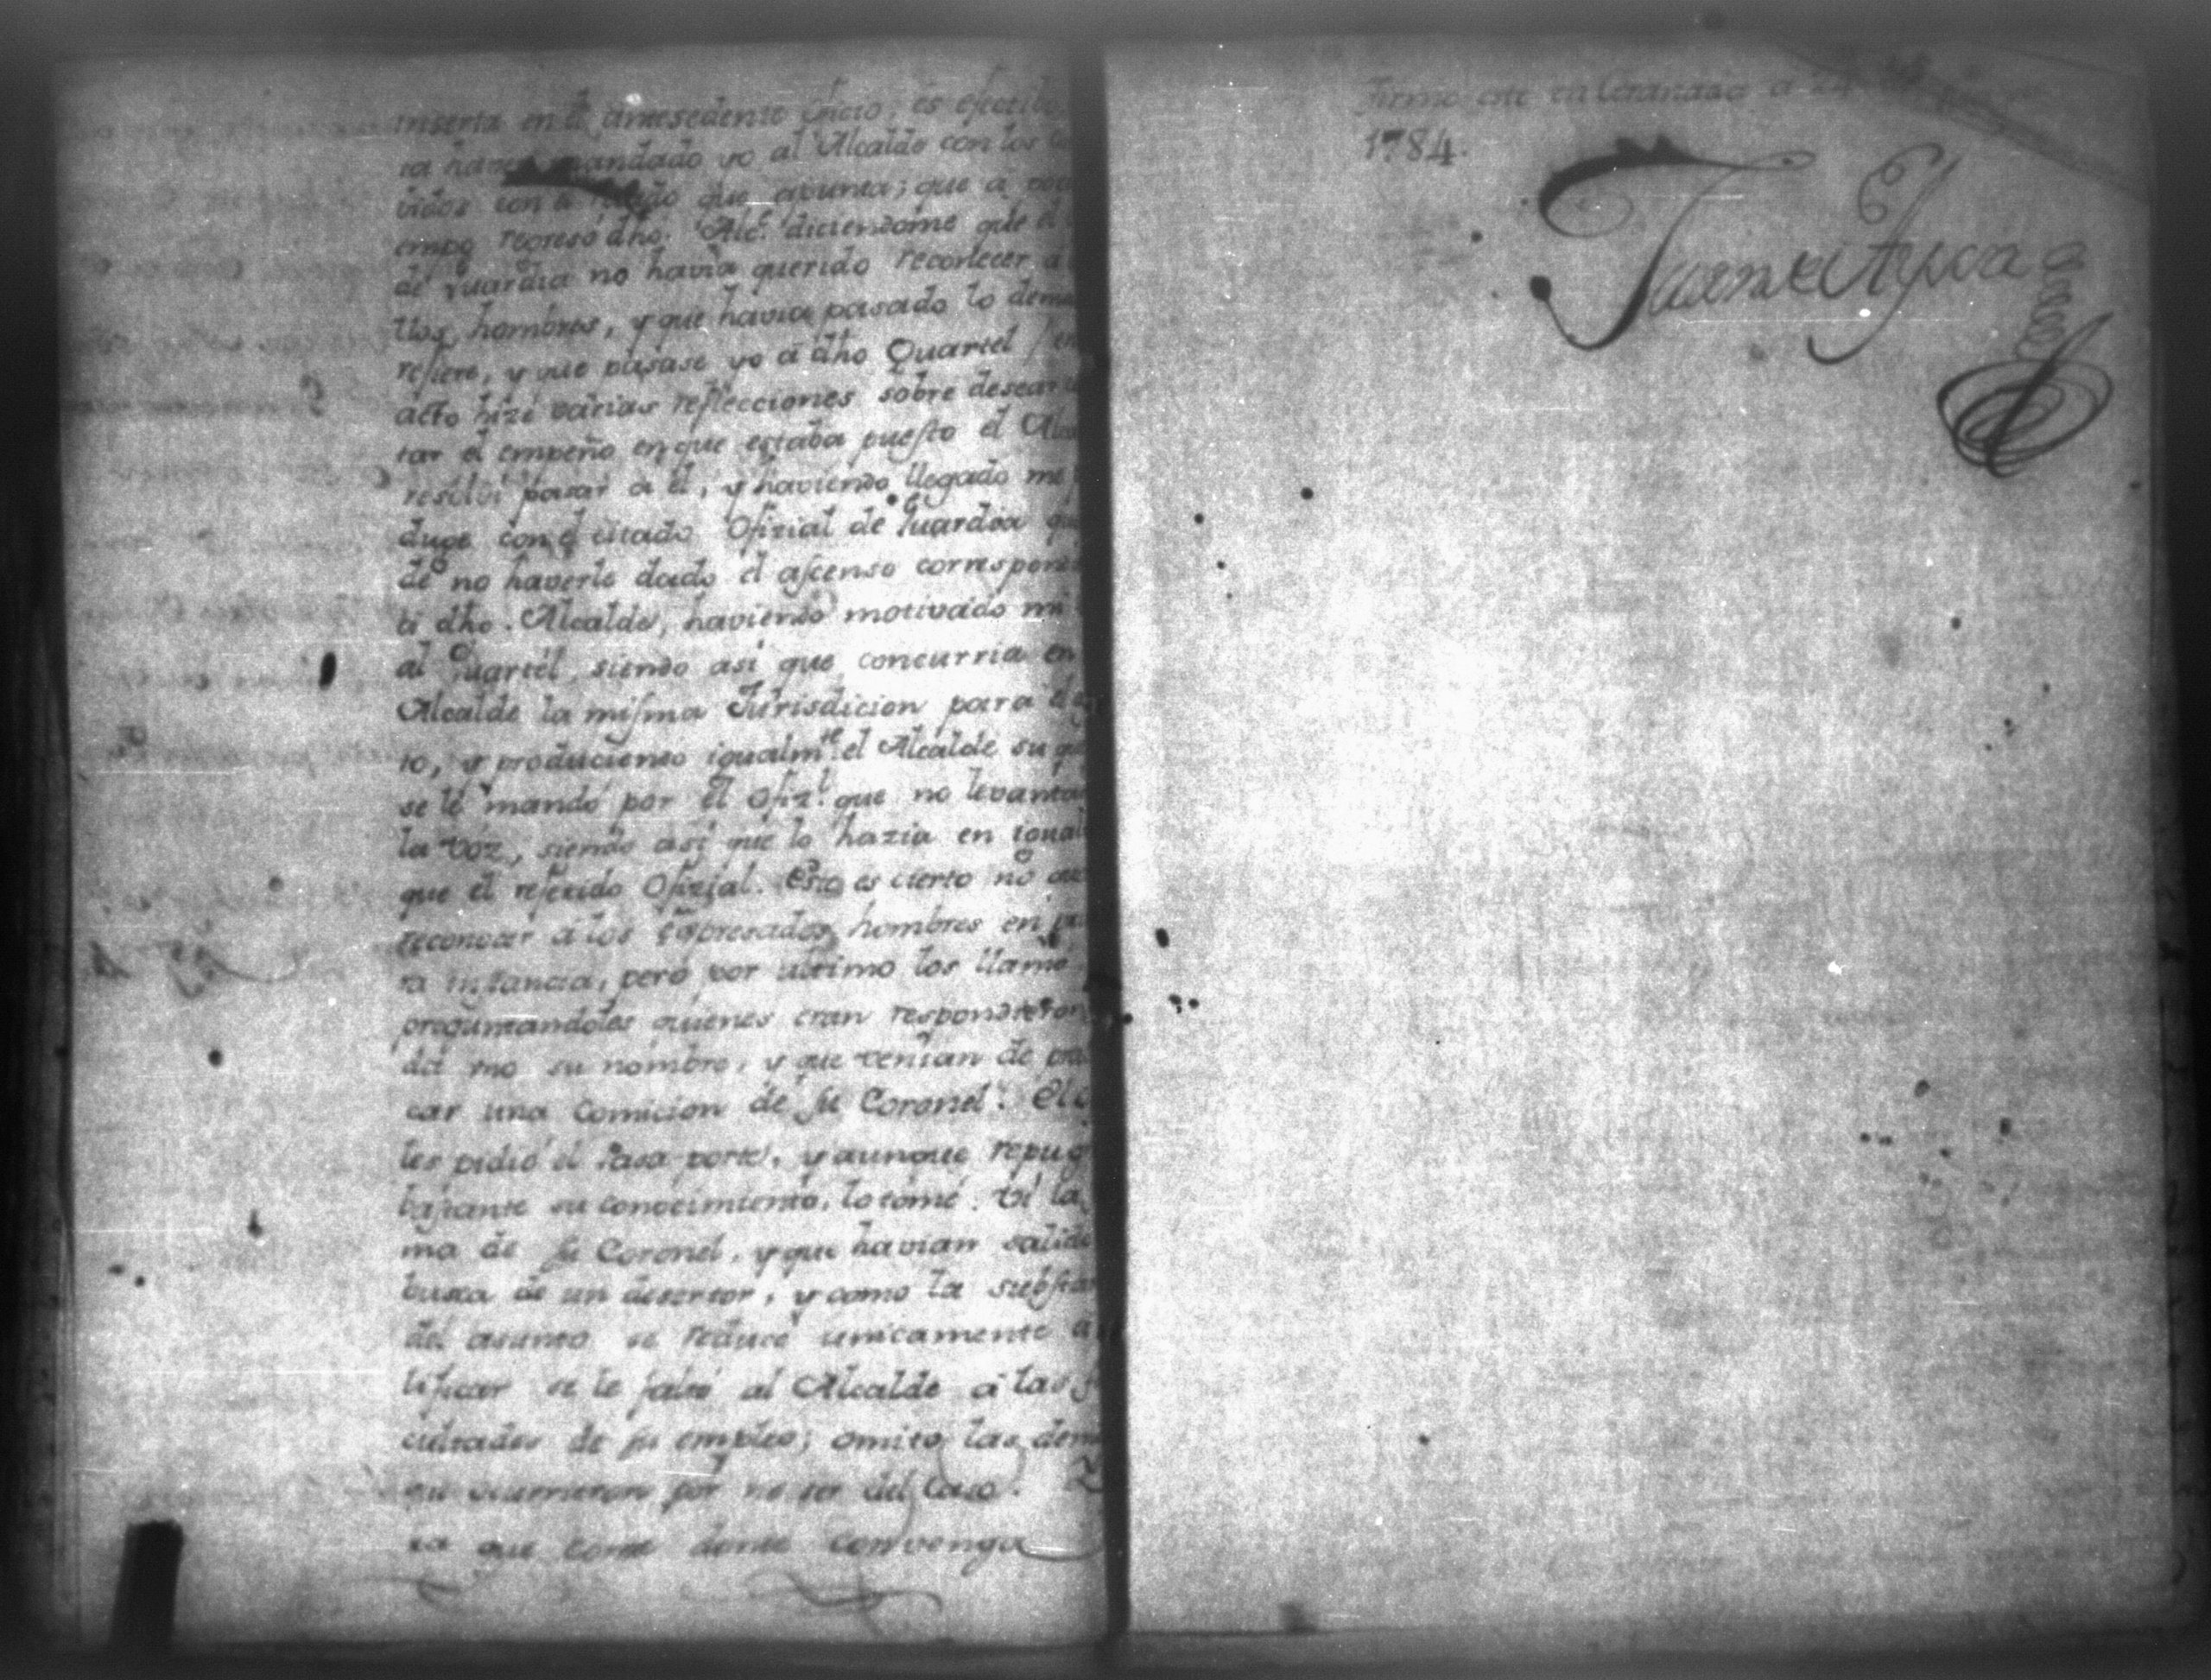 inserta en el antesedente oficio, es efectibo
mandado yo al Alcalde con los
vidos con el que apunta; que a poco
empo regresó dho. Alce. diciendome que el
de Guardia no havia querido reconocer a
llos hombres, y que havia pasado lo dema
refiere, y que pasase yo á dho Quartel en
acto hize varias reflecciones sobre desear
tar el empeño en que estaba puesto el Alca
resolvi pasar a él, y haviendo llegado me
duge con el citado Ofizial de Guardia que
de no haverle dado el ascenso correspond
ti dho. Alcalde, haviendo motivado mi
al Quartel, siendo asi que concurria en
Alcalde la misma Jurisdicion para el
to, y produciendo igualmte. el Alcalde su
se le mandó por el Ofizl. que no levanta
la voz, siendo asi que lo hazia en igual
que el referido Ofizial. Esto es cierto no
reconocer a los Expresados hombres en
ra instancia, pero por ultimo los llamé
preguntandoles quienes eran respondieron
su nombre, y que venian de
car una Comicion de su Coronel. El
les pidió el Pasa-porte, y aunque repug
bastante su conocimiento, lo tomé. Vi la
ma de su Coronel, y que havian salido
busca de un desertor, y como la substan
del asunto se reduce unicamente a
lificar se le faltó al Alcalde á las
cultades de su empleo; omito las dem
que ocurrieron por no ser del Caso.
ra que conste donde convenga
Firmo este en Granada a 24
1784.